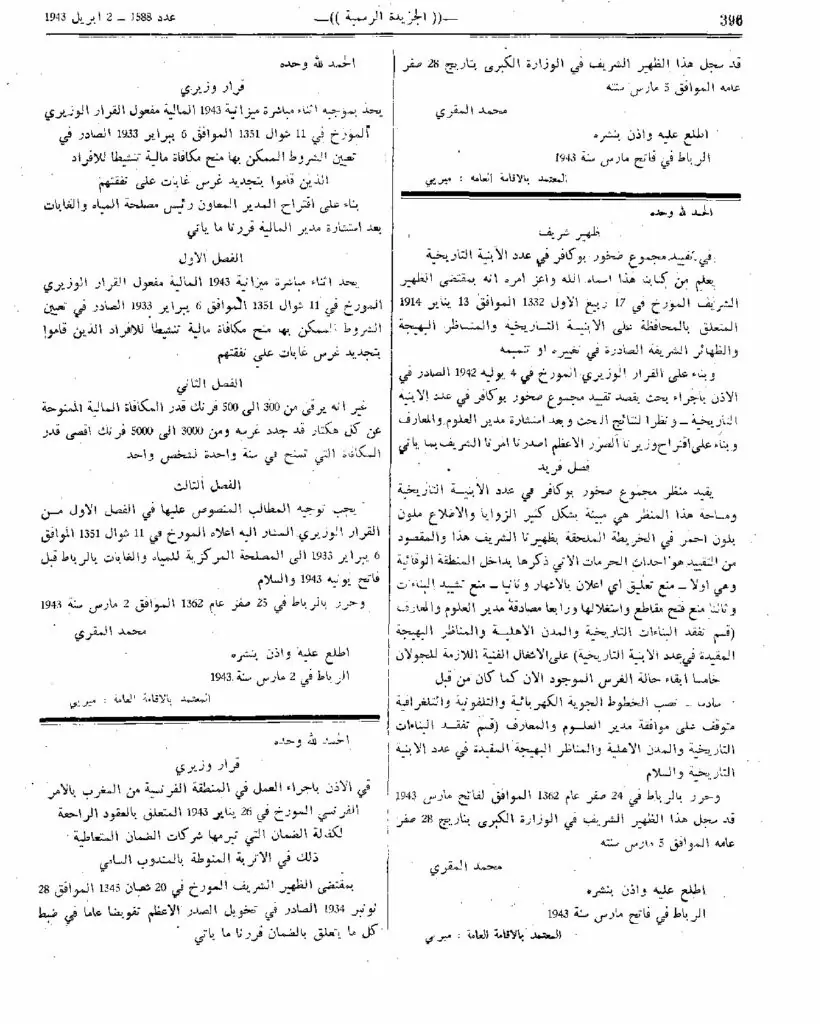 396
—(( الجريدة الرسمية ))—
عدد 1588 – 2 ابريل 1943
قد سجل هذا الظهير الشريف في الوزارة الكبرى بتاريخ 28 صفر
عامه الموافق 5 مارس سنته
محمد المقري
اطلع عليه واذن بنشره
الرباط في فاتح مارس سنة 1943
المعتمد بالاقامة العامة : ميريي
الحمد لله وحده
ظهير شريف
في تقييد مجموع صخور بوكافر في عدد الأبنية التاريخية
يعلم من كتابنا هذا اسماه الله واعز امره انه بمقتضى الظهير
الشريف المؤرخ في 17 ربيع الاول 1332 الموافق 13 يناير 1914
المتعلق بالمحافظة على الابنية التاريخية والمناظر البهيجة
والظهائر الشريفة الصادرة في تغييره او تتميمه
وبناء على القرار الوزيري المورخ في 4 يوليه 1942 الصادر في
الاذن باجراء بحث بقصد تقييد مجموع صخور بوكافر في عدد الابنية
التاريخية – ونظرا لنتائج البحث وبعد استشارة مدير العلوم والمعارف
وبناء على اقتراح وزيرنا الصدر الاعظم اصدرنا امرنا الشريف بما ياتي
فصل فريد
يقيد منظر مجموع صخور بوكافر في عدد الأبنية التاريخية
ومساحة هذا المنظر هي مبينة بشكل كثير الزوايا والاضلاع ملون
بلون احمر في الخريطة الملحقة بظهيرنا الشريف هذا والمقصود
من التقييد هو احداث الحرمات الاتي ذكرها بداخل المنطقة الوقائية
وهي اولا – منع تعليق اي اعلان بالاشهار وثانيا – منع تشييد البناءات
وثالثا منع فتح مقاطع واستغلالها ورابعا مصادقة مدير العلوم والمعارف
(قسم تفقد البناءات التاريخية والمدن الاهلية والمناظر البهيجة
المقيدة في عدد الابنية التاريخية) على الاشغال الفنية اللازمة للجولان
خامسا ابقاء حالة الغرس الموجود الان كما كان من قبل
سادسا – نصب الخطوط الجوية الكهربائية والتلفونية والتلغرافية
متوقف على موافقة مدير العلوم والمعارف (قسم تفقد البناءات
التاريخية والمدن الاهلية والمناظر البهيجة المقيدة في عدد الابنية
التاريخية والسلام
وحرر بالرباط في 24 صفر عام 1362 الموافق لفاتح مارس 1943
قد سجل هذا الظهير الشريف في الوزارة الكبرى بتاريخ 28 صفر
عامه الموافق 5 مارس سنته
محمد المقري
اطلع عليه واذن بنشره
الرباط في فاتح مارس سنة 1943
المعتمد بالاقامة العامة : ميريي
الحمد لله وحده
قرار وزيري
يحذ بموجبه اثناء مباشرة ميزانية 1943 المالية مفعول القرار الوزيري
المورخ في 11 شوال 1351 الموافق 6 يبراير 1933 الصادر في
تعيين الشروط الممكن بها منح مكافاة مالية تنشيطا للافراد
الذين قاموا بتجديد غرس غابات على نفقتهم
بناء على اقتراح المدير المعاون رئيس مصلحة المياه والغابات
بعد استشارة مدير المالية قررنا ما ياتي
الفصل الاول
يحد اثناء مباشرة ميزانية 1943 المالية مفعول القرار الوزيري
المورخ في 11 شوال 1351 الموافق 6 يبراير 1933 الصادر في تعيين
الشروط الممكن بها منح مكافاة مالية تنشيطا للافراد الذين قاموا
بتجديد غرس غابات على نفقتهم
الفصل الثاني
غير انه يرقى من 300 الى 500 فرنك قدر المكافاة المالية الممنوحة
عن كل هكتار قد جدد غرسه ومن 3000 الى 5000 فرنك اقصى قدر
المكافاة التي تمنح في سنة واحدة لشخص واحد
الفصل الثالث
يجب توجيه المطالب المنصوص عليها في الفصل الاول من
القرار الوزيري المشار اليه اعلاه المورخ في 11 شوال 1351 الموافق
6 يبراير 1933 الى المصلحة المركزية للمياه والغابات بالرباط قبل
فاتح يونيه 1943 والسلام
وحرر بالرباط في 25 صفر عام 1362 الموافق 2 مارس سنة 1943
محمد المقري
اطلع عليه واذن بنشره
الرباط في 2 مارس سنة 1943.
المعتمد بالاقامة العامة : ميريي
الحمد لله وحده
قرار وزيري
في الاذن باجراء العمل في المنطقة الفرنسية من المغرب بالامر
الفرنسي المورخ في 26 يناير 1943 المتعلق بالعقود الراجعة
لكفالة الضمان التي تبرمها شركات الضمان المتعاطية
ذلك في الاتربة المنوطة بالمندوب السامي
بمقتضى الظهير الشريف المورخ في 20 شعبان 1345 الموافق 28
نونبر 1934 الصادر في تخويل الصدر الاعظم تفويضا عاما في ضبط
كل ما يتعلق بالضمان قررنا ما ياتي